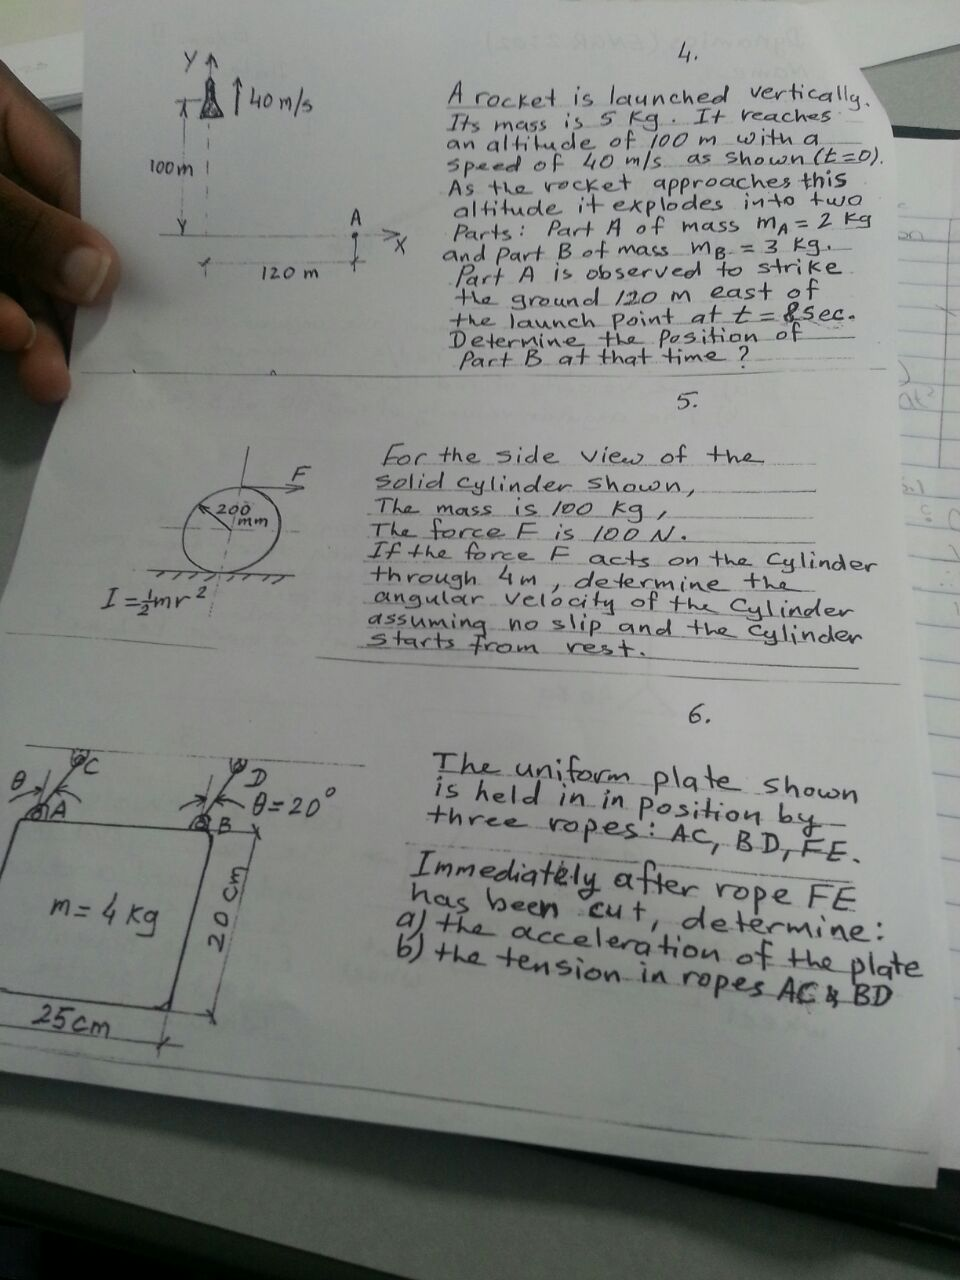 4.
Y
40 m/s
100m
A
X
120 m
A rocket is launched vertically.
Its mass is 5 kg. It reaches
an altitude of 100 m with a
speed of 40 m/s as shown (t=0).
As the rocket approaches this
altitude it explodes into two
Parts: Part A of mass mA = 2 kg
and part B of mass mB = 3 kg.
Part A is observed to strike
the ground 120 m east of
the launch point at t = 8 sec.
Determine the position of
Part B at that time ?
5.
F
200
mm
I = 1/2 mr²
For the side view of the
solid cylinder shown,
The mass is 100 kg,
The force F is 100 N.
If the force F acts on the cylinder
through 4m, determine the
angular velocity of the cylinder
assuming no slip and the cylinder
starts from rest.
6.
θ
C
A
D
θ = 20°
B
m = 4 kg
20 cm
25 cm
The uniform plate shown
is held in in position by
three ropes: AC, BD, FE.
Immediately after rope FE
has been cut, determine:
a) the acceleration of the plate
b) the tension in ropes AC & BD